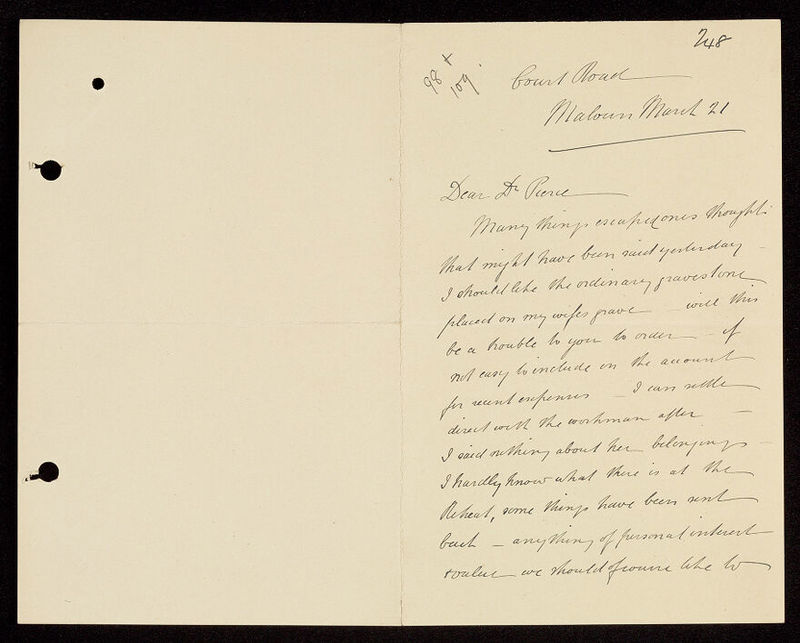 248
98 +
109.
Court Road
Malvern March 21
Dear Dr Pierce
Many things escaped ones thoughts
that might have been said yesterday –
I should like the ordinary gravestone
placed on my wifes grave – will this
be a trouble to you to order – if
not easy to include in the account
for recent expenses – I can settle
direct with the workman after –
I said nothing about her belongings –
I hardly know what there is at the
Retreat, some things have been sent
back – anything of personal interest
+ value we should of course like to